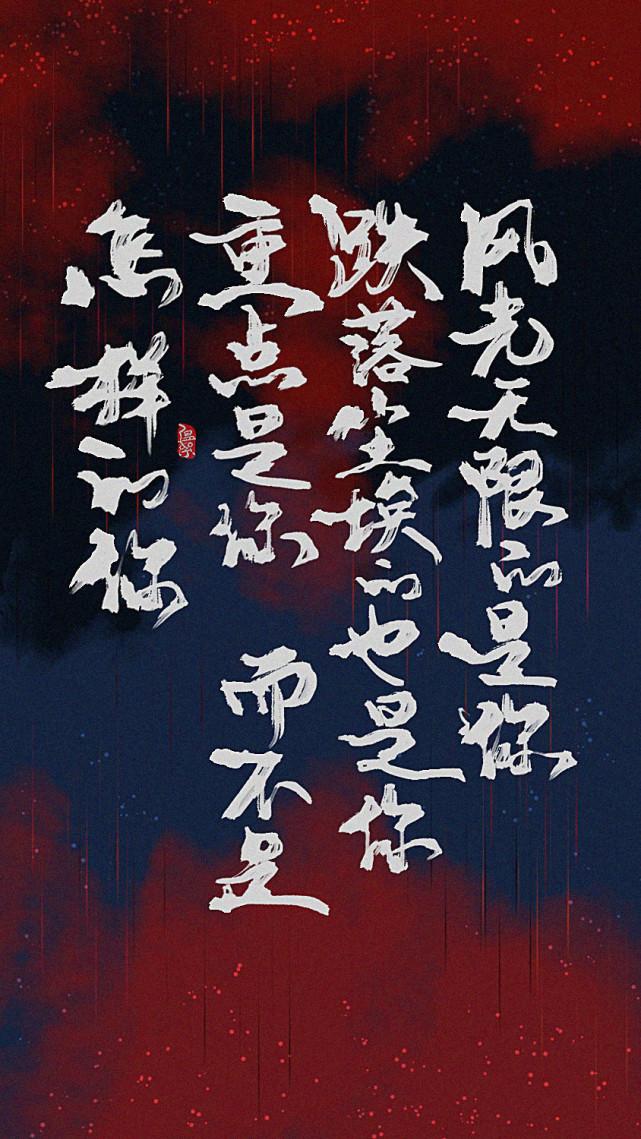 风光无限的是你
跌落尘埃的也是你
重点是你 而不是
怎样的你